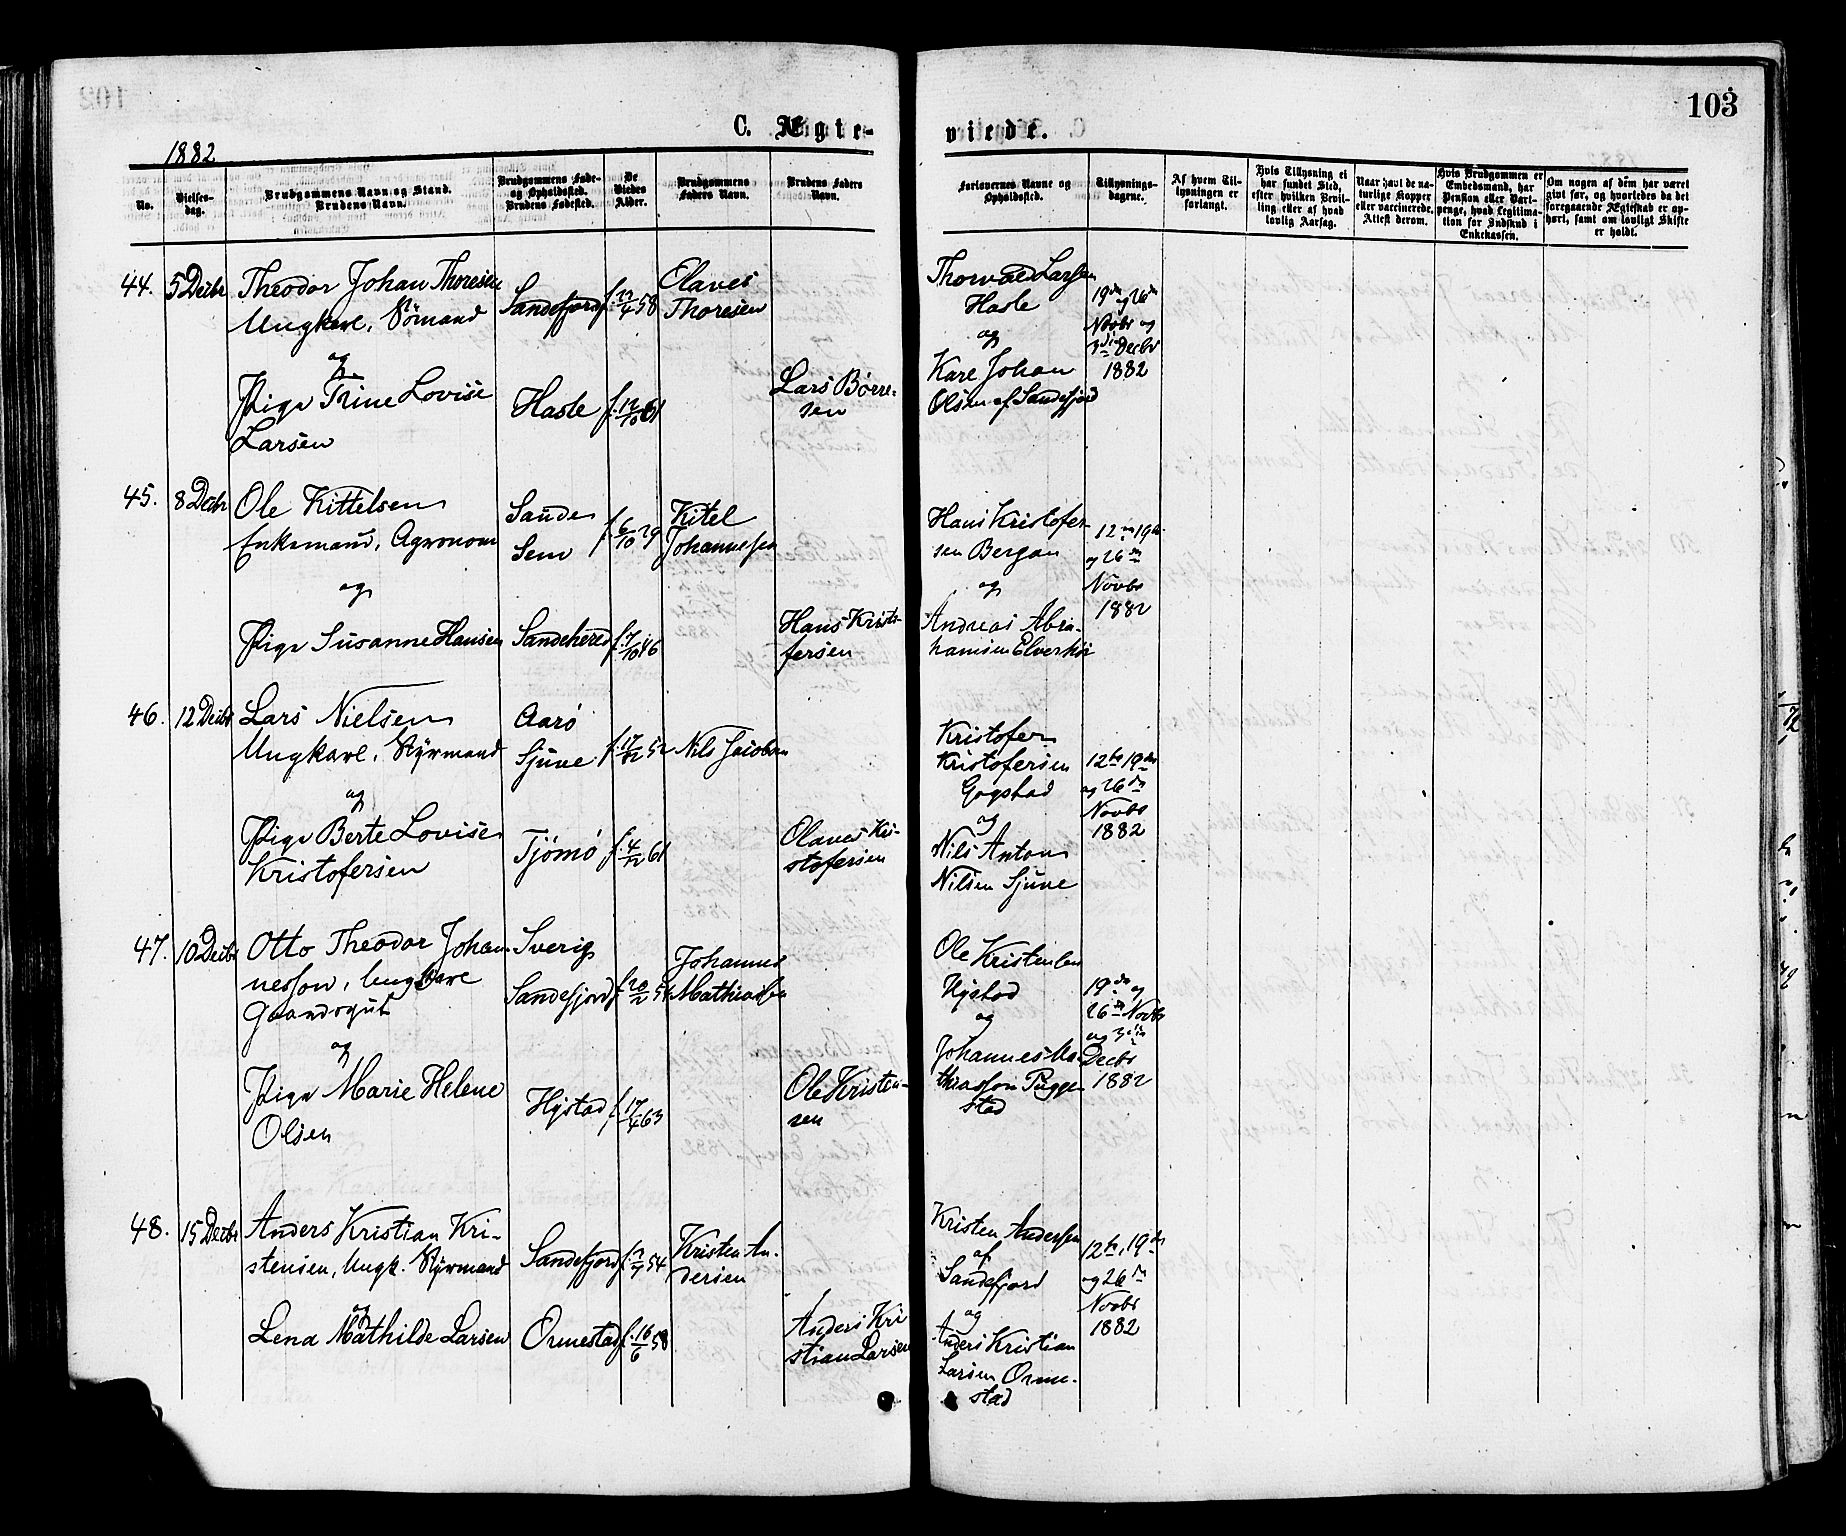 103
C. Ægte-
viede.
1882
No.
Vielses-
dag.
Brudgommens Navn og Stand.
Brudens Navn.
Brudgommens Føde-
og Opholdssted.
Brudens Fødested.
De
Viedes
Alder.
Brudgommens
Faders Navn.
Brudens Faders
Navn.
Forlovernes Navne og
Opholdssted.
Tillysnings-
dagene.
Af hvem Til-
lysningen er
forlangt.
Hvis Tillysning ei
har fundet Sted,
efter hvilken Bevil-
ling eller af hvad
lovlig Aarsag.
Naar havt de na-
turlige Kopper
eller vaccinerede.
Attest derom.
Hvis Brudgommen er
Embedsmand, har
Pension eller Vart-
penge, hvad Legitima-
tion for Indskud i
Enkekassen.
Om nogen af dem har været
gift før, og hvorledes da det
foregaaende Ægteskab er op-
hørt, samt om lovligt Skifte
er holdt.
44. 5 Decbr
Theodor Johan Thoresen
Ungkarl, Sömand
og
Pige Trine Lovise
Larsen
Sandefjord
Hasle
f. 12/10 61
Olaves
Thoresen
Lars Børre-
sen
Thorvald Larsen
Hasle
og
Karl Johan
Olsen af Sandefjord
19de og 26de
Novbr og
3die Decbr
1882
45. 8 Decbr
Ole Kittelsen
Enkemand, Agronom
og
Pige Susanne Hansen
Sande
Sem
Sandeherred
f. 6/10 29
f. 7/10 46
Kitel
Johannesen
Hans Kristo-
fersen
Hans Kristofer-
sen Bergan
og
Andreas Abra-
hamsen Elverhöi
12te 19de
og 26de
Novbr
1882
46. 12 Decbr
Lars Nielsen
Ungkarl, Styrmand
og
Pige Berte Lovise
Kristofersen
Aarö
Sjune
Tjömö
f. 17/12 52
f. 4/12 61
Nils Jacobsen
Olaves Kri-
stofersen
Kristofer
Kristofersen
Gogstad
og
Nils Anton
Nilsen Sjune
12te 19de
og 26de
Novbr
1882
47. 10 Decbr
Otto Theodor Johan-
nesson, Ungkarl
Gaardsgut
og
Pige Marie Helene
Olsen
Sverig
Sandefjord
Hystad
f. 17/4 63
Johannes
Mathiassen
Ole Kristen-
sen
Ole Kristensen
Hystad
og
Johannes Ma-
thiasson Pugge-
stad
19de og
26de Novbr
og 3die
Decbr
1882
48. 15 Decbr
Anders Kristian Kri-
stensen, Ungk. Styrmand
og
Lena Mathilde Larsen
Sandefjord
Ormestad
f. 16/6 58
Kristen An-
dersen
Anders Kri
stian Larsen
Kristen Andersen
af
Sandefjord
og
Anders Kristian
Larsen Orme-
stad
12te, 19de
og 26de
Novbr
1882